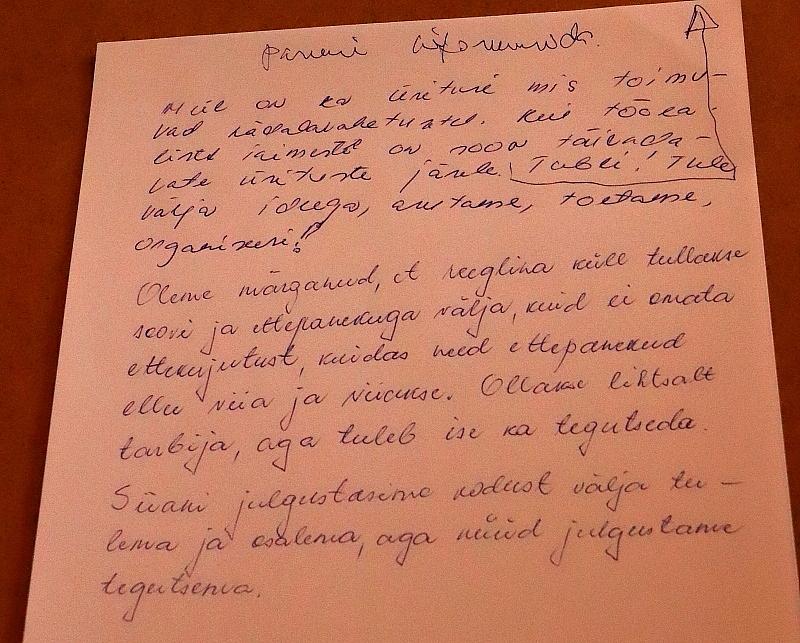 paneri
Meil on ka üritusi mis toimu-
vad nädalavahetustel. Kuid tööea-
liste inimeste on soov täienda-
vate ürituste järele. Tubli! Tule
välja ideega, aitame, toetame,
organiseeri!
Oleme märganud, et reeglina küll tullakse
soovi ja ettepanekuga välja, kuid ei omata
ettekujutust, kuidas need ettepanekud
ellu viia ja viiakse. Ollakse lihtsalt
tarbija, aga tuleb ise ka tegutseda.
Siiani julgustasime kodust välja tu-
lema ja osalema, aga nüüd julgustame
tegutsema.